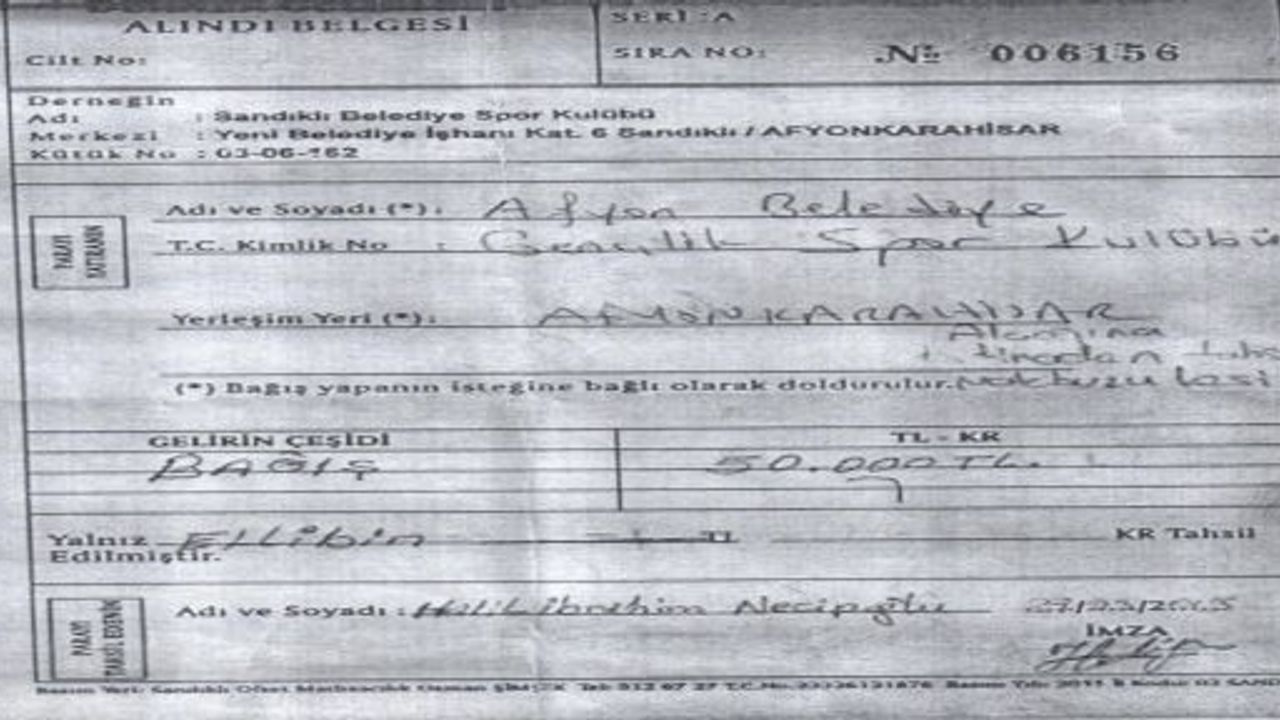 ALINDI BELGESİ
Cilt No:
SERİ :A
SIRA NO: № 006156
Derneğin
Adı : Sandıklı Belediye Spor Kulübü
Merkezi : Yeni Belediye İşhanı Kat. 6 Sandıklı / AFYONKARAHİSAR
Kütük No : 03-06-162
PARAYI YATIRANIN
Adı ve Soyadı (*) : Afyon Belediye
T.C. Kimlik No : Gençlik Spor Kulübü
Yerleşim Yeri (*) : AFYONKARAHİSAR
(*) Bağış yapanın isteğine bağlı olarak doldurulur.
GELİRİN ÇEŞİDİ
TL - KR
BAĞIŞ
50.000 TL.
Yalnız Ellibin TL KR Tahsil
Edilmiştir.
PARAYI TAHSİL EDENİN
Adı ve Soyadı : Halil İbrahim Necipoğlu
İMZA
Basım Yeri: Sandıklı Ofset Matbaacılık Osman